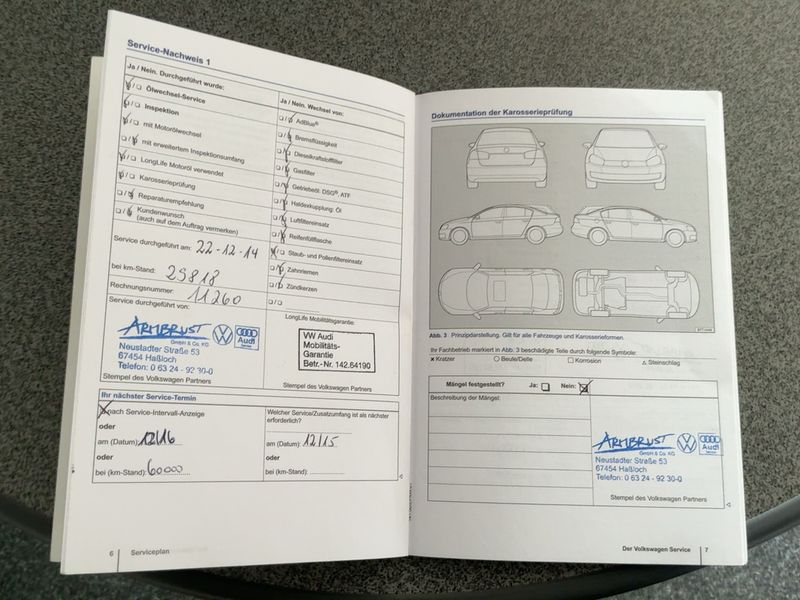 Service-Nachweis 1
Ja / Nein. Durchgeführt wurde:
Ölwechsel-Service
Inspektion
mit Motorölwechsel
mit erweitertem Inspektionsumfang
LongLife Motoröl verwendet
Karosserieprüfung
Reparaturempfehlung
Kundenwunsch
(auch auf dem Auftrag vermerken)
Service durchgeführt am: 22-12-14
bei km-Stand: 29818
Rechnungsnummer: 11260
Service durchgeführt von:
ARMBRUST
GmbH & Co. KG
Audi
Service
Neustadter Straße 53
67454 Haßloch
Telefon: 0 63 24 - 92 30-0
Stempel des Volkswagen Partners
Ja / Nein. Wechsel von:
AdBlue®
Bremsflüssigkeit
Dieselkraftstofffilter
Gasfilter
Getriebeöl: DSG®, ATF
Haldexkupplung: Öl
Luftfiltereinsatz
Reifenfüllflasche
Staub- und Pollenfiltereinsatz
Zahnriemen
Zündkerzen
LongLife Mobilitätsgarantie:
VW Audi
Mobilitäts-
Garantie
Betr.-Nr. 142.64190
Stempel des Volkswagen Partners
Ihr nächster Service-Termin
nach Service-Intervall-Anzeige
oder
am (Datum): 12/16
oder
bei (km-Stand): 60000
Welcher Service/Zusatzumfang ist als nächster
erforderlich?
am (Datum): 12/15
oder
bei (km-Stand):
6 Serviceplan
Dokumentation der Karosserieprüfung
Abb. 3 Prinzipdarstellung. Gilt für alle Fahrzeuge und Karosserieformen.
Ihr Fachbetrieb markiert in Abb. 3 beschädigte Teile durch folgende Symbole:
× Kratzer ○ Beule/Delle □ Korrosion △ Steinschlag
Mängel festgestellt? Ja: Nein:
Beschreibung der Mängel:
ARMBRUST
GmbH & Co. KG
Audi
Service
Neustadter Straße 53
67454 Haßloch
Telefon: 0 63 24 - 92 30-0
Stempel des Volkswagen Partners
Der Volkswagen Service 7